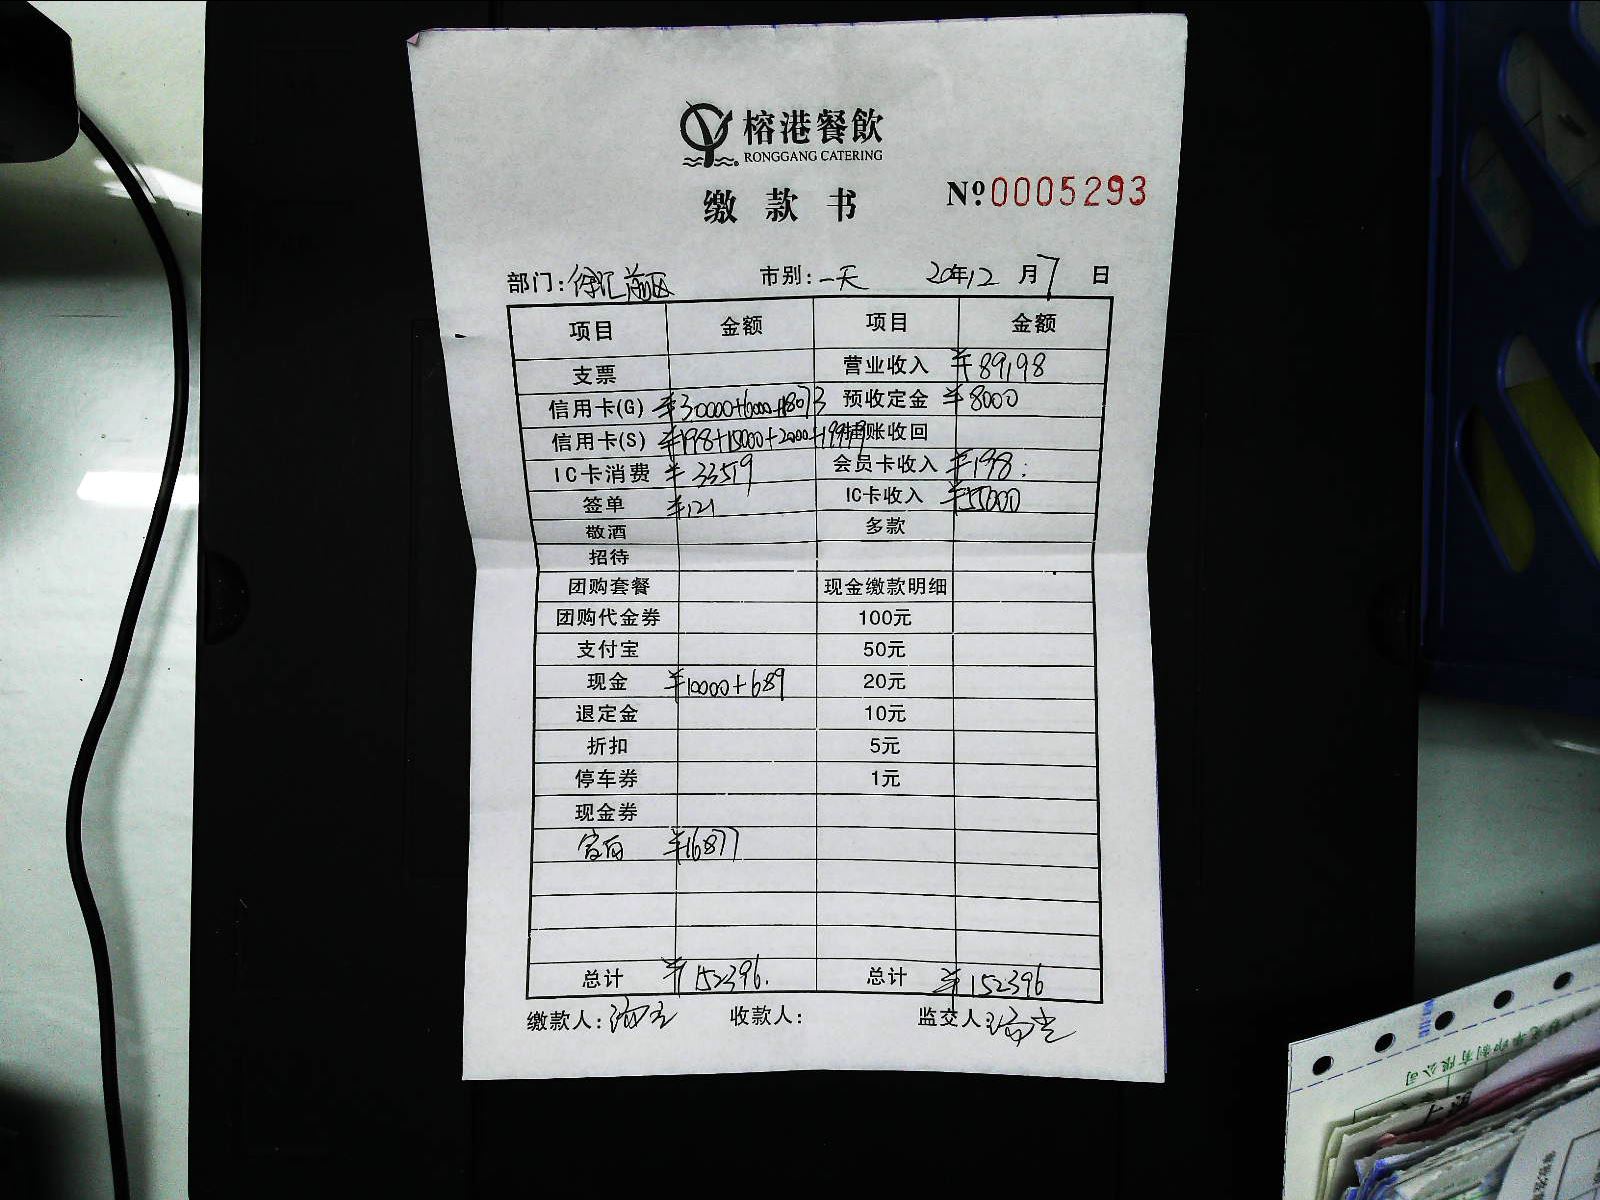 榕港餐飲
RONGGANG CATERING
缴款书 №0005293
部门:徐汇前区 市别:一天 20年12月7日
项目 金额 项目 金额
支票 营业收入 ¥89198
信用卡(G) ¥30000+6000+18073 预收定金 ¥8000
信用卡(S) ¥198+15000+2000+19919 账收回
IC卡消费 ¥33519 会员卡收入 ¥198
签单 ¥121 IC卡收入 ¥55000
敬酒 多款
招待
团购套餐 现金缴款明细
团购代金券 100元
支付宝 50元
现金 ¥10000+689 20元
退定金 10元
折扣 5元
停车券 1元
现金券
¥16877
总计 ¥152396. 总计 ¥152396
缴款人: 收款人: 监交人:
限公司